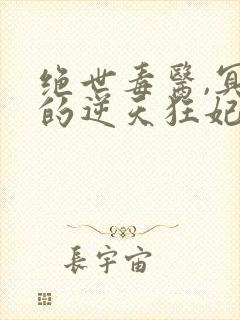 绝世毒醫,冥
的逆天狂妃
長宇宙